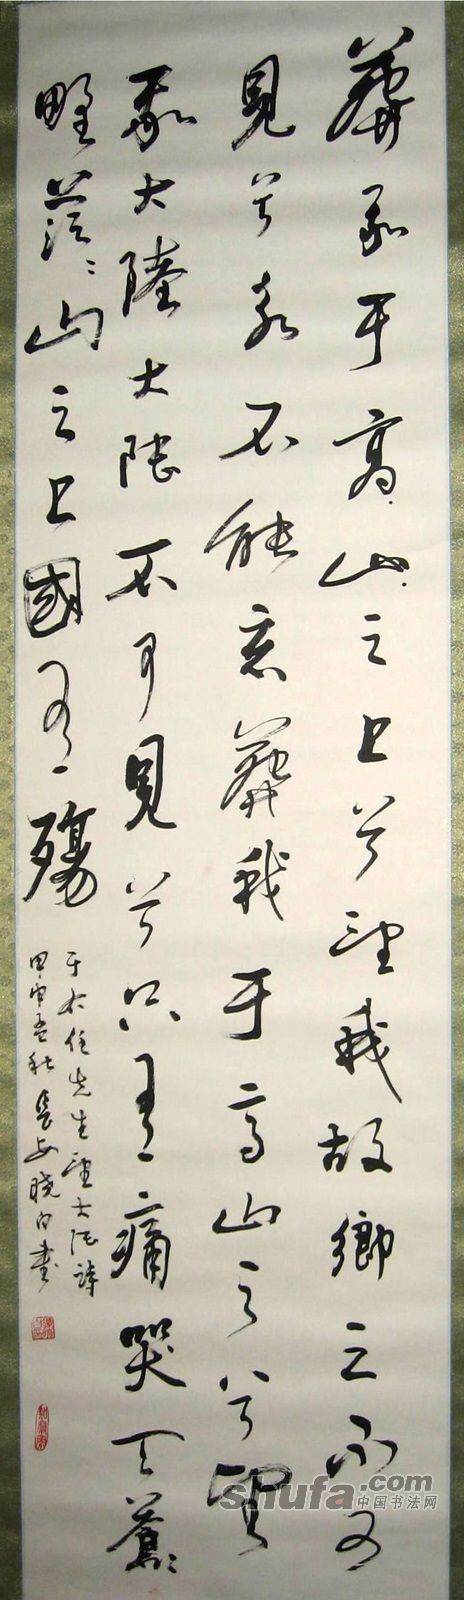 葬我于高山之上兮望我故鄉々々不可
見兮永不能忘葬我于高山之兮望
我大陸大陸不可見兮只有痛哭天蒼々
野茫々山之上國有殤
于右任先生望大陸詩
甲申孟秋長安曉白書
shufa.com
中国书法网